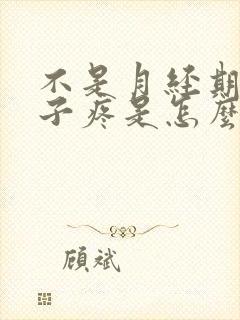 不是月经期
子疼是怎麼
顾斌